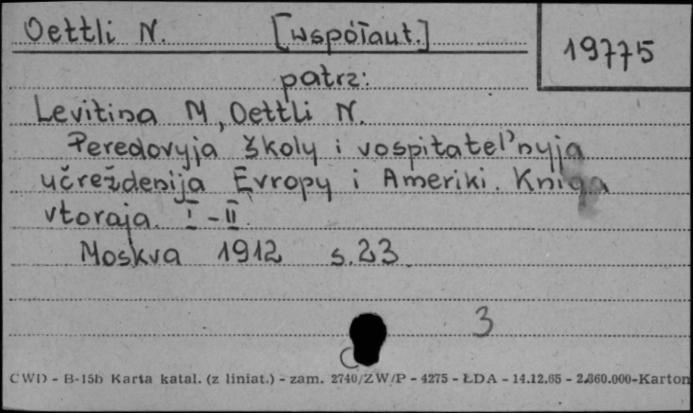 Oettli N. [współaut.]
19775
patrz:
Levitina M, Oettli N.
Peredovyja školy i vospitatel'nyja
učreždenija Evropy i Ameriki. Kniga
vtoraja. I - II.
Moskva 1912 s. 23
3
CWD - B-15b Karta katal. (z liniat.) - zam. 2740/ZW/P - 4275 - ŁDA - 14.12.65 - 2.860.000-Karton